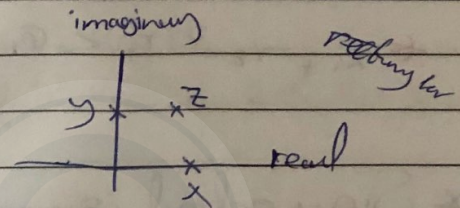 imaginary
rectangular
y z
real
x